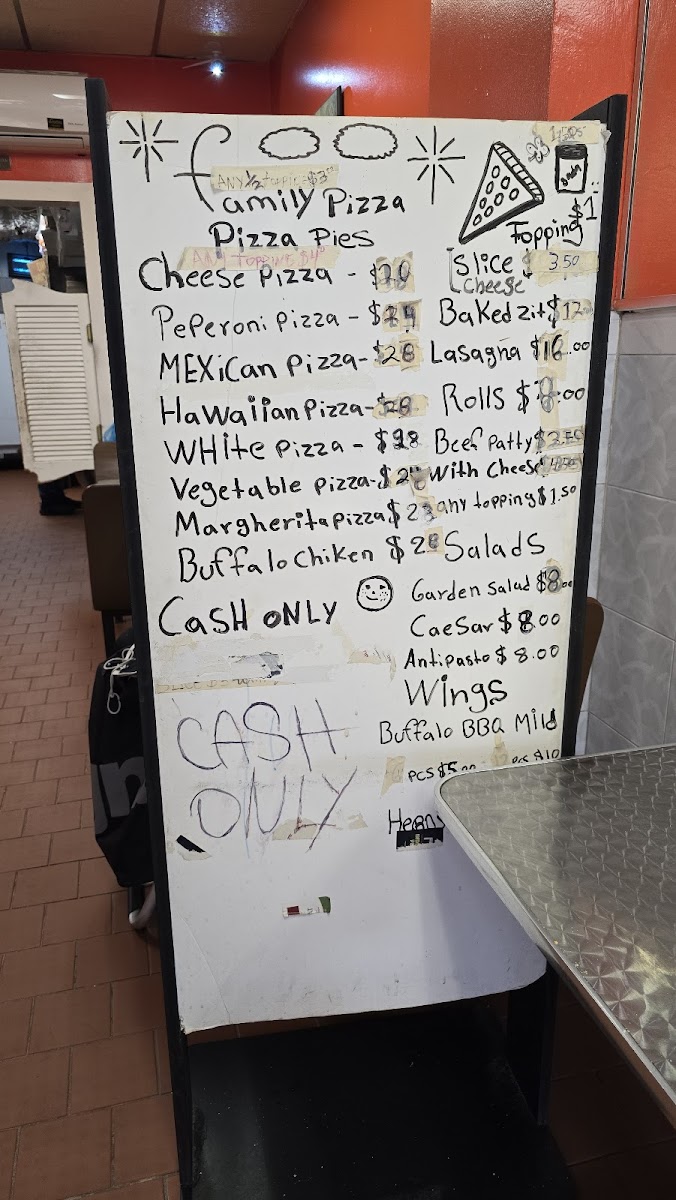 ANY 1/2 TOPPING $3
Family Pizza
Pizza Pies
ANY TOPPING $4
Cheese Pizza - $20
PePeroni Pizza - $24
MEXiCan Pizza - $28
HaWaiian Pizza - $28
WHite Pizza -
Vegetable Pizza -
Margherita Pizza
Buffalo Chiken
CaSH ONLY
CASH
ONLY
$1
Topping
Slice $ 3.50
Cheese
Baked ziti $12
Lasagna $16.00
Rolls
Beef Patty
With Cheese
any topping $1.50
SaladS
Garden Salad $8.00
CaeSar $8.00
Antipasto $8.00
Wings
Buffalo BBQ Mild
PCS $5 PCS $10